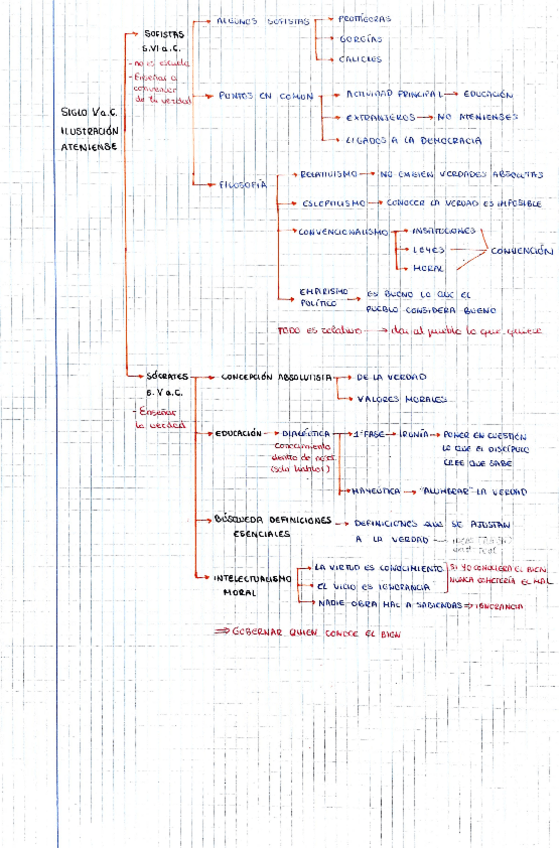 SIGLO V a.C.
ILUSTRACIÓN
ATENIENSE
SOFISTAS
S.VI a.C.
- no es escuela
- Enseñar a
convencer
de tu verdad
ALGUNOS SOFISTAS
PROTÁGORAS
GORGIAS
CALICLES
PUNTOS EN COMÚN
ACTIVIDAD PRINCIPAL → EDUCACIÓN
EXTRANJEROS → NO ATENIENSES
LIGADOS A LA DEMOCRACIA
FILOSOFÍA
RELATIVISMO → NO EXISTEN VERDADES ABSOLUTAS
ESCEPTICISMO → CONOCER LA VERDAD ES IMPOSIBLE
CONVENCIONALISMO
INSTITUCIONES
LEYES
MORAL
CONVENCIÓN
EMPIRISMO
POLÍTICO
ES BUENO LO QUE EL
PUEBLO CONSIDERA BUENO
TODO es relativo → dar al pueblo lo que quiere
SÓCRATES
S. V a.C.
- Enseñar
la verdad
CONCEPCIÓN ABSOLUTISTA
DE LA VERDAD
VALORES MORALES
EDUCACIÓN → DIALÉCTICA
conocimiento
dentro de
1ª FASE → IRONÍA → PONER EN CUESTIÓN
LO QUE EL DISCÍPULO
CREE QUE SABE
MAYÉUTICA → "ALUMBRAR" LA VERDAD
BÚSQUEDA DEFINICIONES
ESENCIALES
DEFINICIONES QUE SE AJUSTAN
A LA VERDAD
INTELECTUALISMO
MORAL
LA VIRTUD ES CONOCIMIENTO
EL VICIO ES IGNORANCIA
SI YO CONOCIERA EL BIEN
NUNCA COMETERÍA EL MAL
NADIE OBRA MAL A SABIENDAS ⇒ IGNORANCIA
⇒ GOBERNAR QUIEN CONOCE EL BIEN